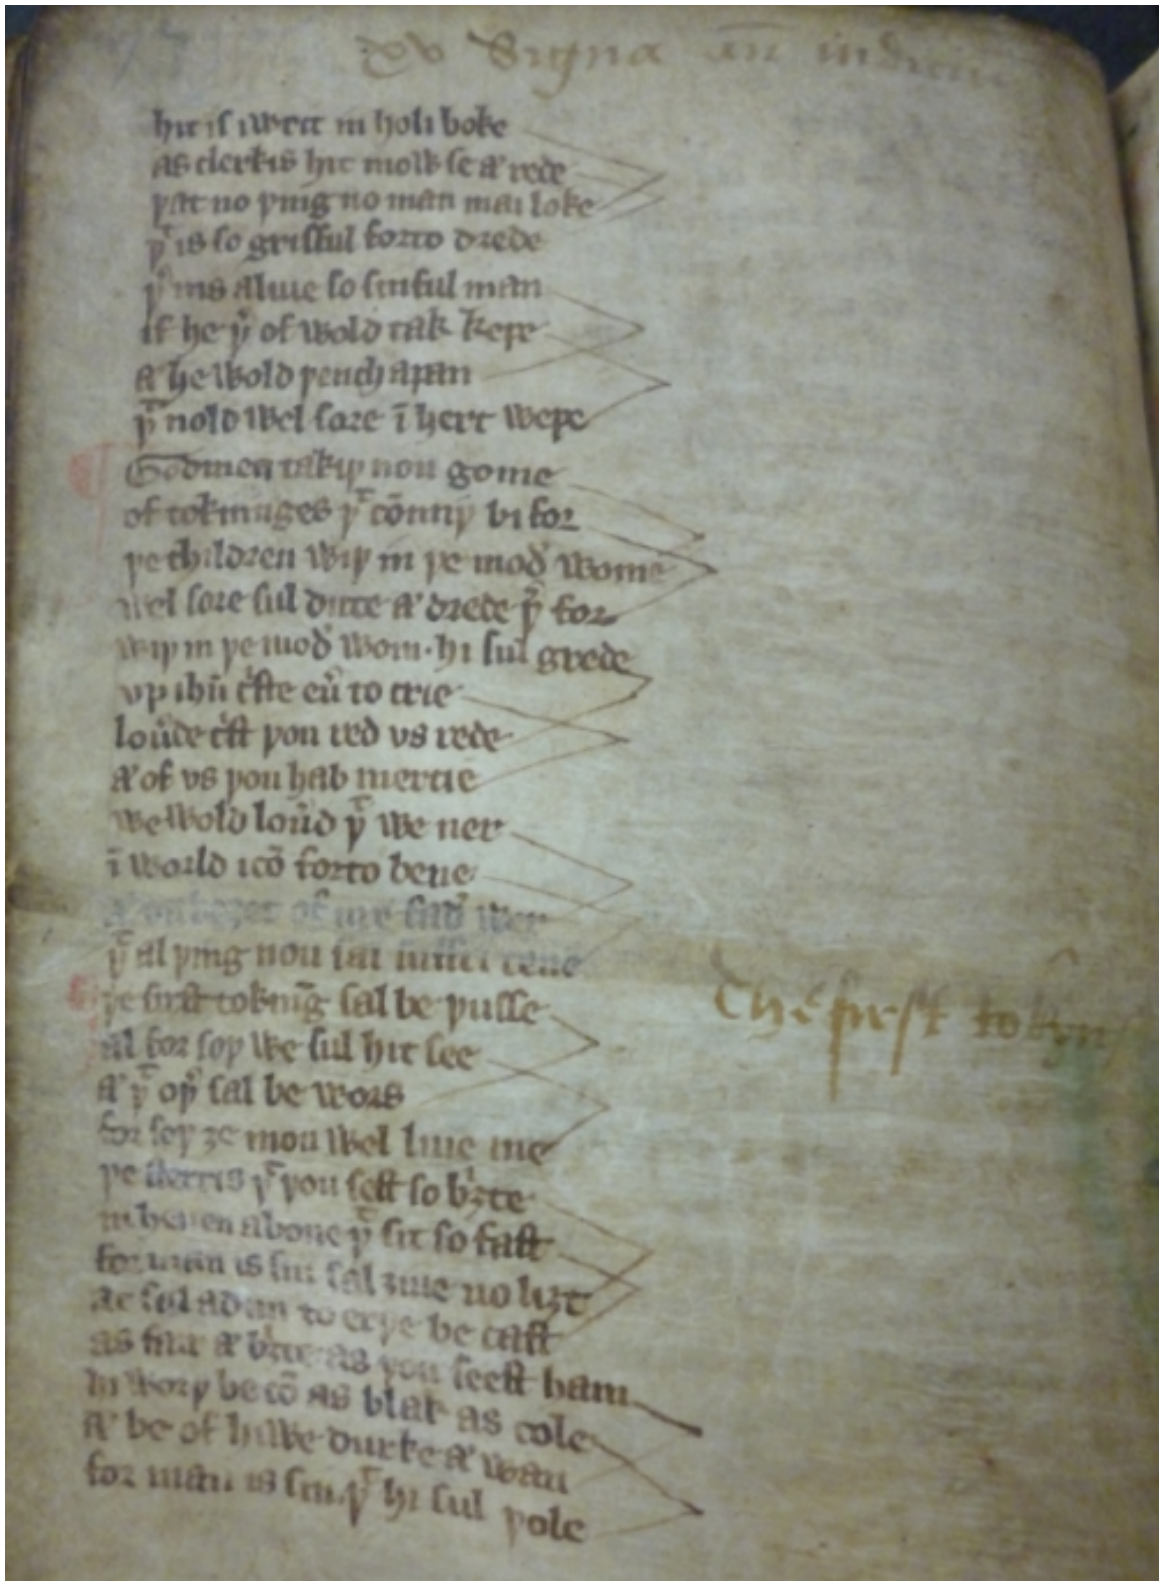 xv Signa an̄ iudiciu
hit is iwrit in holi boke
as clerkis hit mow se & rede
þat no þing no man mai loke
þͭ is so grisful forto drede
þer nis aliue so sinful man
if he þer of wold tak kepe
& he wold þench apan
þͭ nold wel sore ī hert wepe
Godmen takiþ nou gome
of tokninges þͭ cōmiþ bifor
þe children wiþ in þe mod' wome
wel sore sul dute & drede þer for
wiþ in þe mod' wom· hi sul grede
vp ihū c'ste eu' to crie
lou'de c'st þou red vs rede
& of vs þou hab mercie
we wold lou'd þͭ we ner
ī world icō forto bene
of ure fad' wer
þͭ al þing nou
þe first tokning sal be þusse
al for soþ we sul hit see
& þͭ oþ' sal be wors
for soþ ȝe mou wel liue me
The first tokyn
þe sterris þͭ þou sest so briȝte
in heuen aboue þͭ sit so fast
for man is sin sal ȝiue no liȝt
ac sal adun to erþe be cast
as fair & briȝte as þou seest ham
hi worþ becō as blak as cole
& be of hiwe durke & wan
for man is sin þͭ hi sul þole